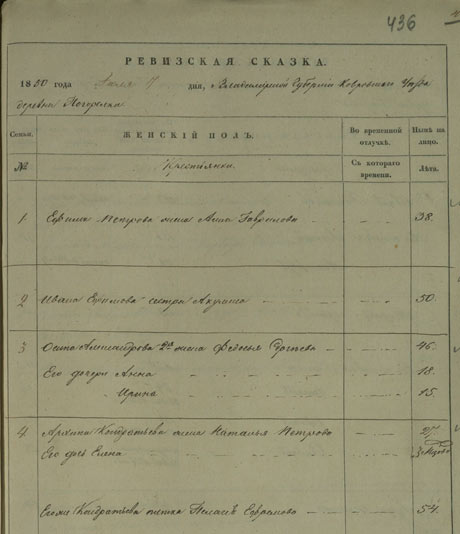 436
РЕВИЗСКАЯ СКАЗКА.
1850 года Июля 7 дня, Владимирской Губерніи Ковровскаго Уѣзда
деревни Погорелки
Семьи. ЖЕНСКІЙ ПОЛЪ. Во временной отлучкѣ. Нынѣ на лицо.
№ Крестьянки. Съ котораго времени. Лѣта.
1 Ефима Петрова жена Анна Гаврилова 38.
2 Ивана Ефимова сестра Акулина 50.
3 Осипа Александрова 2я жена Федосья 46.
Его дочери Анна 18.
Ирина 15.
4 Архипа Кондратьева жена Наталья Петрова 27
Его дочь Елена
Кондратьева тетка Ефремова 54.